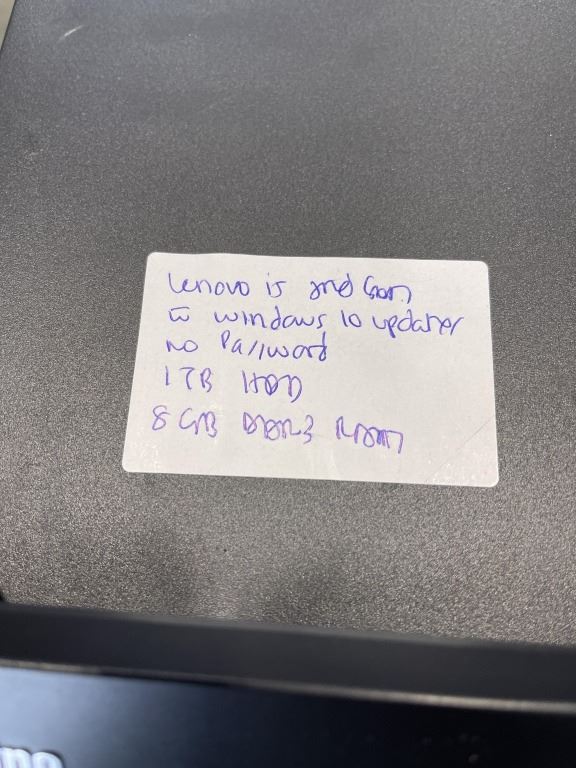 Lenovo i5 2nd Gen
windows 10 updated
no Password
1TB HDD
8GB DDR3 RAM